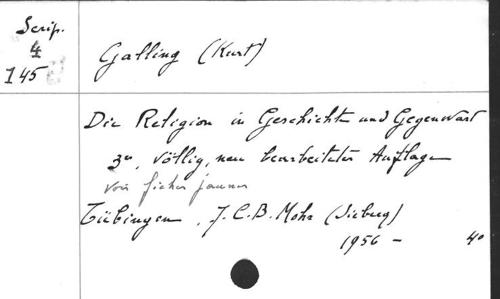 Scrip.
4
145
Galling (Kurt)
Die Religion in Geschichte und Gegenwart
3e, völlig, neu bearbeitete Auflage
Voir fiches jaunes
Tübingen, J.C.B. Mohr (Siebeck)
1956 - 4°